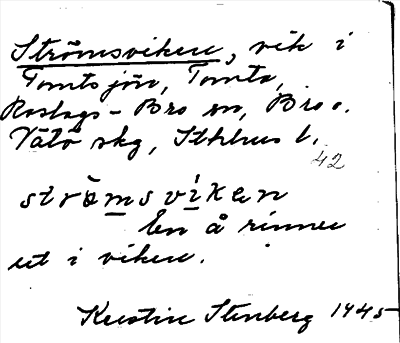 Strömsviken, vik i
Tomtsjön, Tomta,
Roslags-Bro sn, Bro o.
Vätö skg, Sthlms l.
42
strömsviken
En å rinner
ut i viken.
Kerstin Stenberg 1945